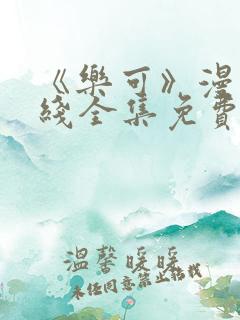 《樂可》漫
綫全集免費
溫馨暖暖
未經同意禁止轉載